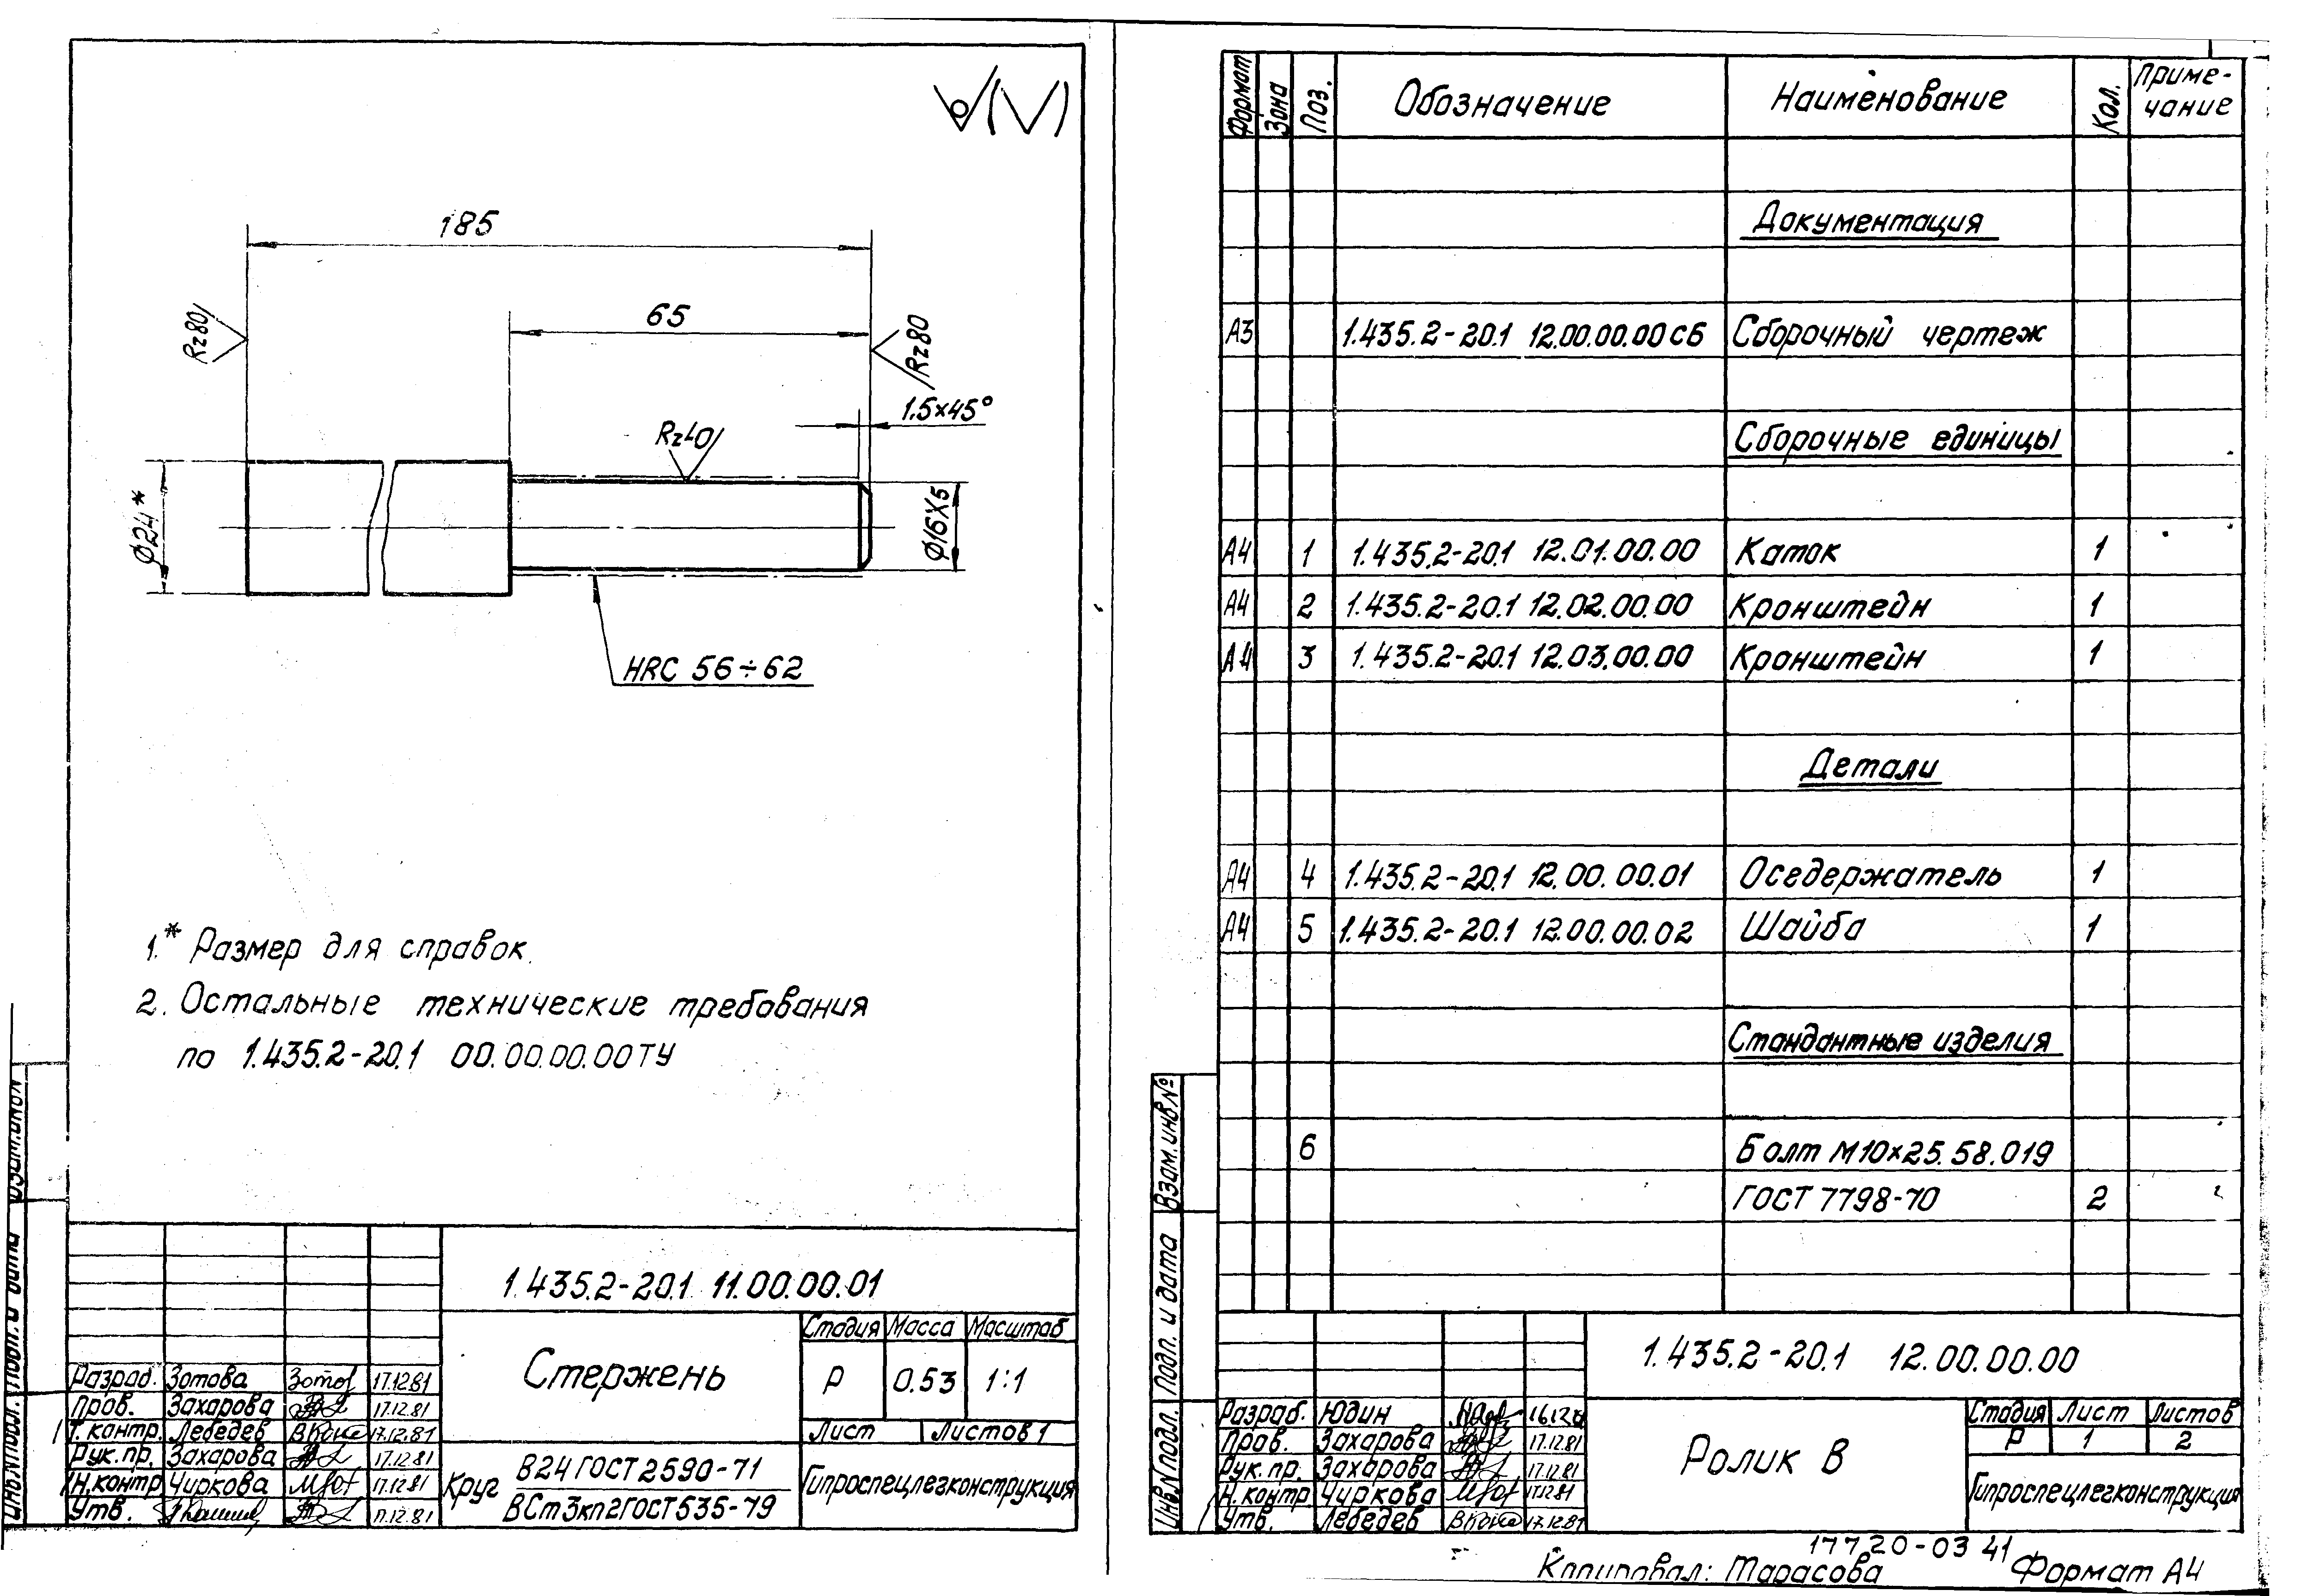 185
65
Rz80
Rz80
1.5×45°
Rz40
⌀24*
⌀16X5
HRC 56÷62
1.* Размер для справок.
2. Остальные технические требования
по 1.435.2-20.1 00.00.00.00ТУ
1.435.2-20.1 11.00.00.01
Стадия Масса Масштаб
Стержень
Р 0.53 1:1
Лист Листов 1
Разраб. Зотова Зотов 17.12.81
Пров. Захарова 17.12.81
Т.контр. Лебедев 17.12.81
Рук.пр. Захарова 17.12.81
Н.контр Чиркова 17.12.81
Утв. 17.12.81
Круг В24 ГОСТ 2590-71
ВСт3кп2 ГОСТ 535-79
Гипроспецлегконструкция
Инв.№ подл. Подп. и дата Взам.инв№
Формат Зона Поз. Обозначение Наименование Кол. Приме-
чание
Документация
А3 1.435.2-20.1 12.00.00.00СБ Сборочный чертеж
Сборочные единицы
А4 1 1.435.2-20.1 12.01.00.00 Каток 1
А4 2 1.435.2-20.1 12.02.00.00 Кронштейн 1
А4 3 1.435.2-20.1 12.03.00.00 Кронштейн 1
Детали
А4 4 1.435.2-20.1 12.00.00.01 Оседержатель 1
А4 5 1.435.2-20.1 12.00.00.02 Шайба 1
Стандантные изделия
6 Болт М10×25.58.019
ГОСТ 7798-70 2
Инв.№ подл. Подп. и дата Взам.инв№
1.435.2-20.1 12.00.00.00
Разраб. Юдин
Пров. Захарова 17.12.81
Рук.пр. Захарова 17.12.81
Н.контр Чиркова 17.12.81
Утв. Лебедев 17.12.81
Ролик В
Стадия Лист Листов
Р 1 2
Гипроспецлегконструкция
17720-03 41
Копировал: Тарасова Формат А4